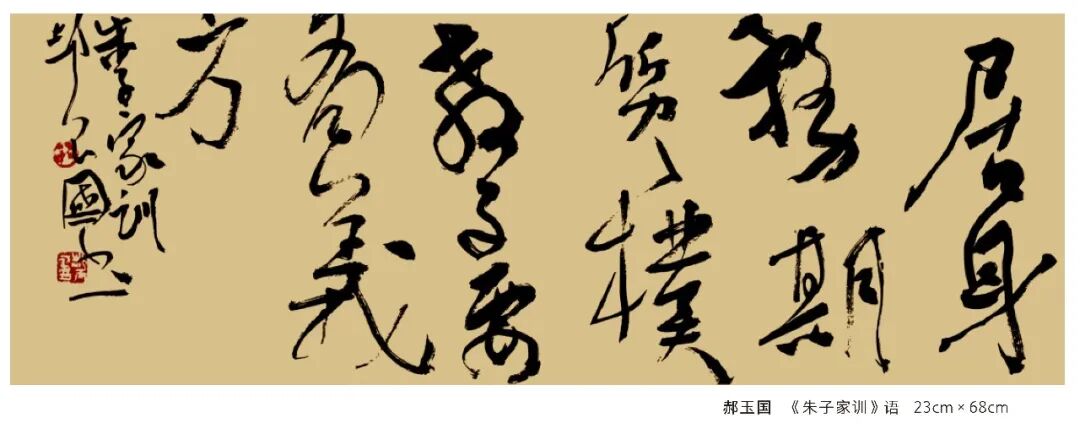 居身
務期
質樸
教子要
有義
方
朱子家訓
郝玉國书
郝玉国 《朱子家训》语 23cm×68cm